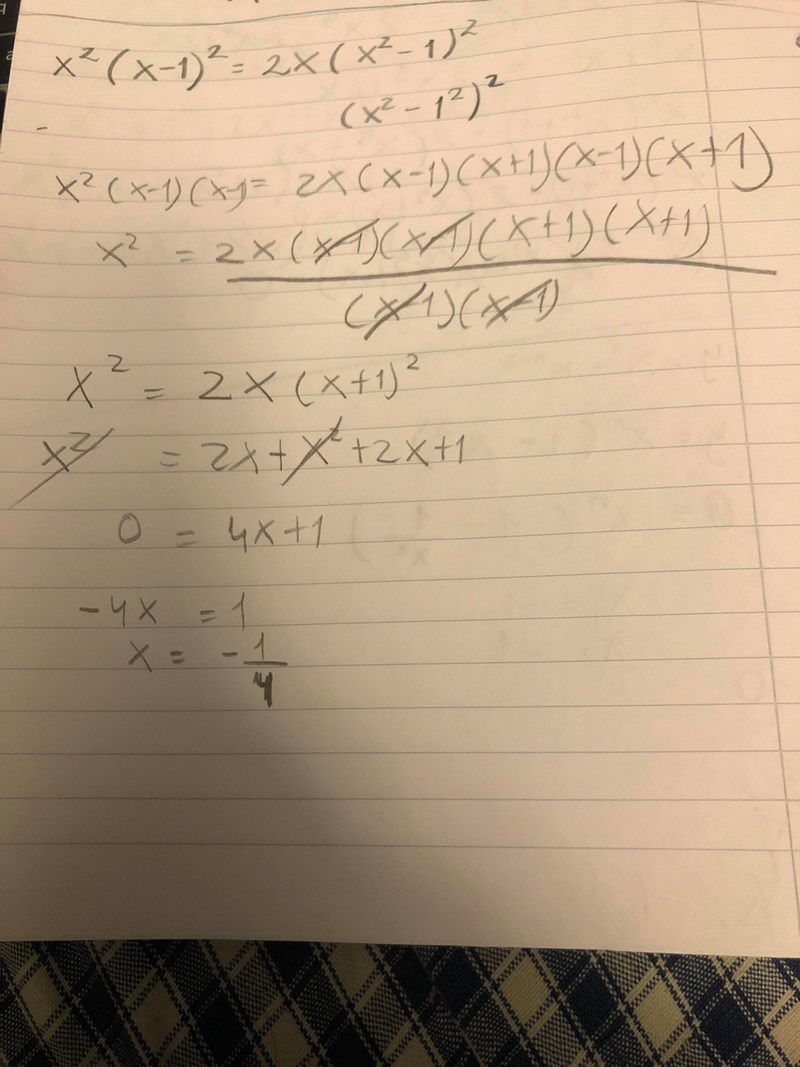 x² (x-1)² = 2x (x² - 1)²
(x² - 1²)²
x² (x-1) (x-1) = 2x (x-1) (x+1) (x-1) (x+1)
x² = 2x (x-1) (x-1) (x+1) (x+1)
(x-1) (x-1)
x² = 2x (x+1)²
x² = 2x + x² + 2x + 1
0 = 4x+1
-4x = 1
x = - 1
4